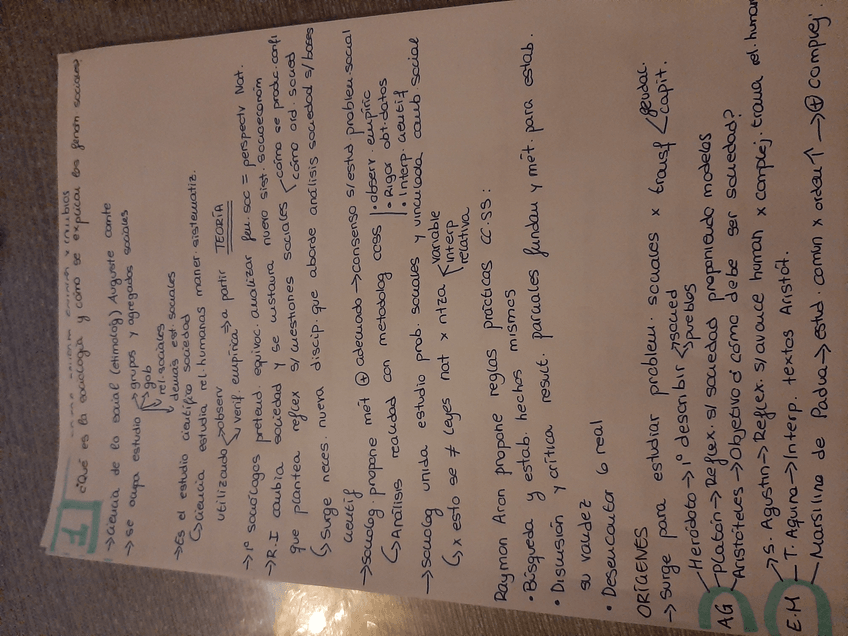 1
¿Qué es la sociología y cómo se explican los fenóm sociales?
→ ciencia de lo social (etimolog) Auguste Comte
→ se ocupa estudio → grupos y agregados sociales
gob
rel. sociales
demás est. sociales
→ Es el estudio científico sociedad
↳ ciencia estudia rel. humanas maner. sistematiz.
utilizando → observ
verif. empírica ⇒ a partir TEORÍA
→ 1º sociólogos pretend. equivoc. analizar fen. soc = perspectv Nat.
→ R.I cambia sociedad y se instaura nuevo sist. socioeconóm
que plantea reflex s/cuestiones sociales cómo se produc. confl
cómo ord. socied
↳ Surge neces. nueva discip que aborde análisis sociedad s/bases
científ
→ sociolog. propone mét ⊕ adecuado → consenso s/estud problem social
↳ Análisis realidad con metodolog ccss • observ. empíric
• Rigor obt. datos
• Interp. científ
→ sociolog unida estudio prob. sociales y vinculada camb social
↳ x esto se ≠ leyes nat x ntza variable
interp
relativa
Raymon Aron propone reglas prácticas CC.SS:
• Búsqueda y estab. hechos mismos
• Discusión y crítica result. parciales fundam y mét. para estab.
su validez
• Desencantar lo real
ORÍGENES
→ Surge para estudiar problem. sociales x transf feudal.
capit.
AG
Heródoto → 1º describir socied
pueblos
Platón → Reflex. s/ sociedad propiciendo modelos
Aristóteles → Objetivo d cómo debe ser sociedad?
E.M
S. Agustín → Reflex. s/avance human x complej. trama rel. human
T. Aquino → Interp. textos Aristót.
Marsilino de Padua → estud. común x orden ↑ → ⊕ complej.